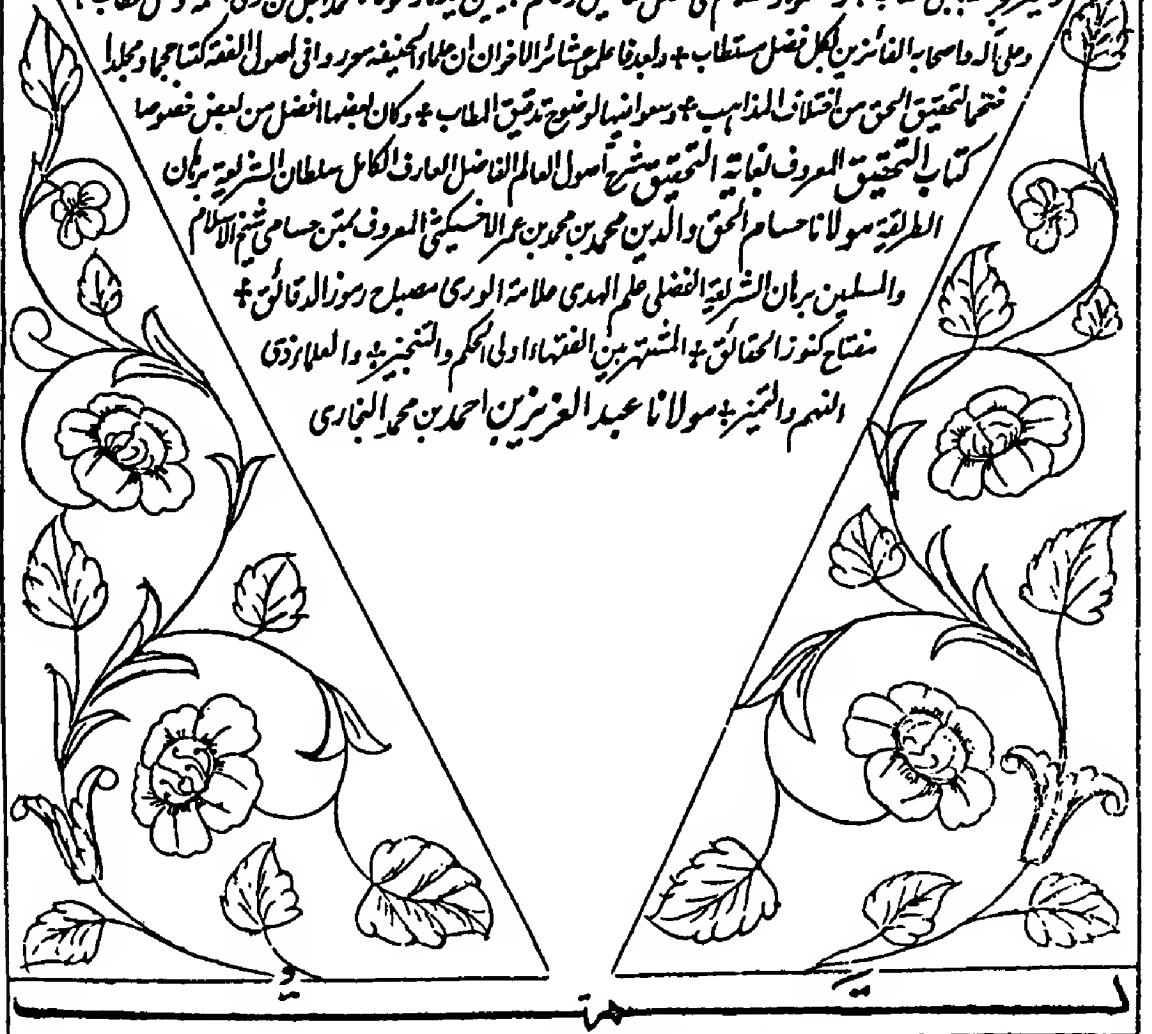 وعلى آله واصحابه الفائزين لكل فضل مستطاب + وبعد فاعلموا معشر الاخوان ان علماء الحنيفة حرروا فى اصول الفقه كتبا حجما ومجلدا
تحقيق الحق من اختلاف المذاهب + وسعوا فيها لوضوح تدقيق المطالب + وكان بعضها افضل من بعض خصوصا
كتاب التحقيق المعروف بغاية التحقيق شرح اصول العالم الفاضل العارف الكامل سلطان الشريعة برهان
الطريقة مولانا حسام الحق والدين محمد بن محمد بن عمر الاخسيكثى المعروف بمتن حسامى شيخ الاسلام
والمسلمين برهان الشريعة الفضلى علم الهدى علامة الورى مصباح رموز الدقائق +
مفتاح كنوز الحقائق + المشتهر بين الفقهاء اولى الحكم والتنجيز + والعلماء ذى
الفهم والتميز + مولانا عبد العزيز بن احمد بن محمد البخارى